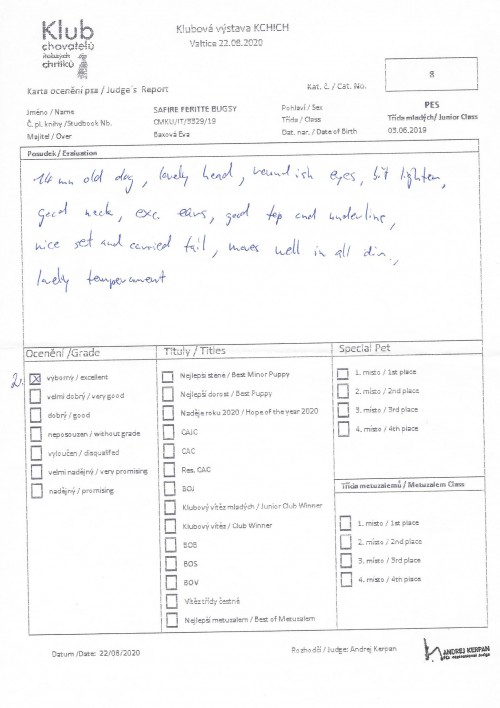 Klub
chovatelů
italských
chrtíků
Klubová výstava KCHICH
Valtice 22.08.2020
Karta ocenění psa / Judge´s Report
Kat. č. / Cat. No.
8
Jméno / Name
SAFIRE FERITTE BUGSY
Pohlaví / Sex
PES
Č. pl. knihy /Studbook Nb.
CMKU/IT/3329/19
Třída / Class
Třída mladých/ Junior Class
Majitel / Over
Baxová Eva
Dat. nar. / Date of Birth
03.06.2019
Posudek / Evaluation
14 mn old dog, lovely head, roundish eyes, bit lighter,
good neck, exc. ears, good top and underline,
nice set and carried tail, moves well in all dir.,
lovely temperament
Ocenění /Grade
2.
výborný / excellent
velmi dobrý / very good
dobrý / good
neposouzen / without grade
vyloučen / disqualifed
velmi nadějný / very promising
nadějný / promising
Tituly / Titles
Nejlepší štěně / Best Minor Puppy
Nejlepší dorost / Best Puppy
Naděje roku 2020 / Hope of the year 2020
CAJC
CAC
Res. CAC
BOJ
Klubový vítěz mladých / Junior Club Winner
Klubový vítěz / Club Winner
BOB
BOS
BOV
Vítěz třídy čestná
Nejlepší metuzalem / Best of Metuzalem
Special Pet
1. místo / 1st place
2. místo / 2nd place
3. místo / 3rd place
4. místo / 4th place
Třída metuzalemů / Metuzalem Class
1. místo / 1st place
2. místo / 2nd place
3. místo / 3rd place
4. místo / 4th place
Datum /Date: 22/08/2020
Rozhodčí / Judge: Andrej Kerpan
ANDREJ KERPAN
FCI international Judge